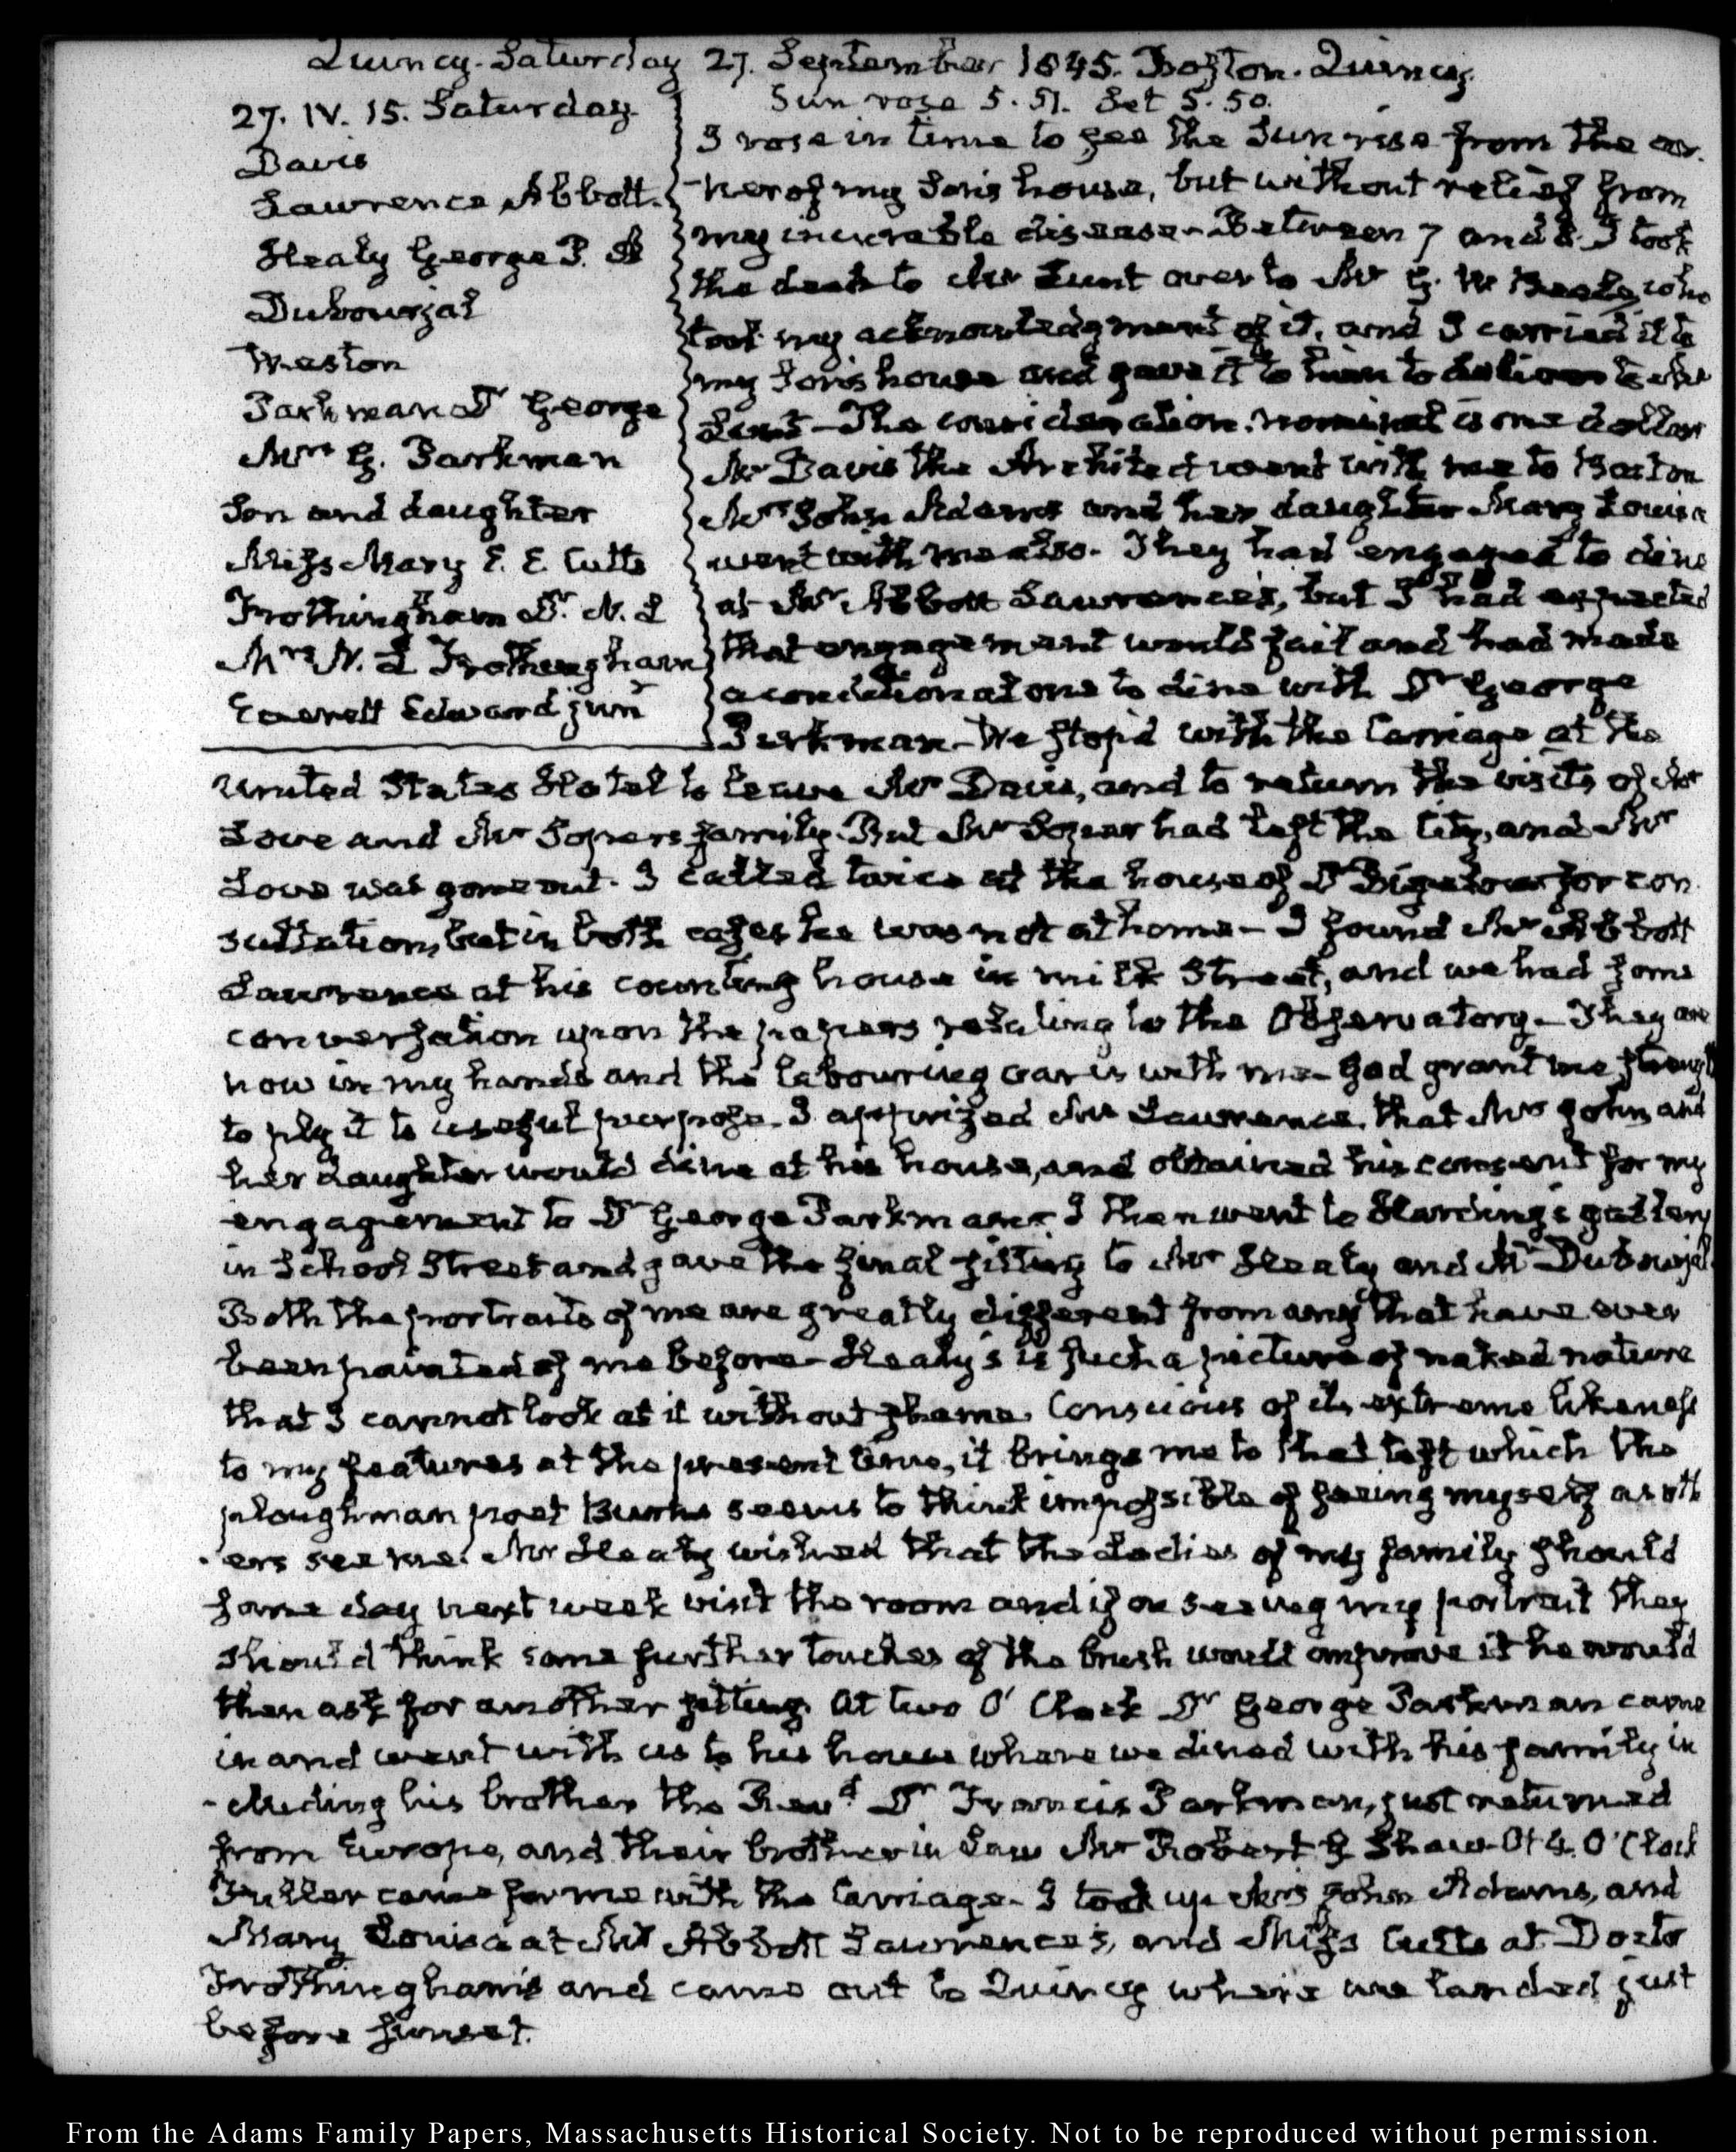 Quincy. Saturday 27. September 1845. Boston. Quincy.
27. IV. 15. Saturday.
Davis
Lawrence Abbott.
Healy George P. A
Dubourjal
Weston
Parkman Dr George
Mrs G. Parkman
Son and daughter
Miss Mary E. E. Cutts
Frothingham Dr. N. L
Mrs N. L Frothingham
Everett Edward junr
Sun rose 5. 51. Set 5. 50.
I rose in time to see the Sun rise from the cor-
-ner of my Son's house, but without relief from
my incurable disease. Between 7 and 8. I took
the deed to Mr Lunt over to Mr G. W Beale, who
took my acknowledgment of it, and I carried it to
my Son's house and gave it to him to deliver to Mr
Lunt. The consideration nominal is one dollar
Mr Davis the Architect went with me to Boston
Mrs John Adams and her daughter Mary Louisa
went with me also. They had engaged to dine
at Mr Abbott Lawrence's, but I had expected
that engagement would fail and had made
a conditional one to dine with Dr George
Parkman. We stop'd with the Carriage at the
United States Hotel to leave Mr Davis, and to return the visits of Mr
Love and Mr Soper's family. But Mr Soper had left the City, and Mr
Love was gone out. I called twice at the house of Dr Bigelow for con
sultation, but in both cases he was not at home. I found Mr Abbott
Lawrence at his counting house in milk Street, and we had some
conversation upon the papers relating to the Observatory. They are
now in my hands and the labouring oar is with me. God grant me strength
to ply it to useful purpose. I apprized Mr Lawrence that Mrs John and
her daughter would dine at his house, and obtained his consent for my
engagement to Dr George Parkman. I then went to Harding's gallery
in School Street and gave the final sitting to Mr Healy and Mr Dubourjal.
Both the portraits of me are greatly different from any that have ever
been painted of me before. Healy's is such a picture of naked nature
that I cannot look at it without shame. Conscious of its extreme likeness
to my features at the present time, it brings me to that test which the
ploughman poet Burns seems to think impossible of seeing myself as oth
-ers see me. Mr Healy wished that the Ladies of my family should
some day next week visit the room and if on seeing my portrait they
should think some further touches of the brush would improve it he would
then ask for another sitting. At two O' Clock Dr George Parkman came
in and went with us to his house where we dined with his family in
-cluding his brother the Revd Dr Francis Parkman, just returned
from Europe, and their brother in law Mr Robert G Shaw. At 4. O'Clock
Fuller came for me with the Carriage. I took up Mrs John Adams, and
Mary Louisa at Mr Abbott Lawrence's, and Miss Cutts at Doctr
Frothingham's and came out to Quincy where we landed just
before sunset.
From the Adams Family Papers, Massachusetts Historical Society. Not to be reproduced without permission.